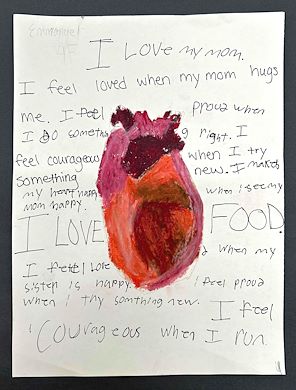 Emmanuel
4F
I Love my mom.
I feel loved when my mom hugs
me. I feel proud when
I do somethi g right. I
feel courageous when I try
something new. I makes
my heart happy when i see my
mom happy.
I LOVE FOOD.
I feel Love d when my
sister is happy. I feel proud
when I thy somthing new. I feel
Courageous when I run.